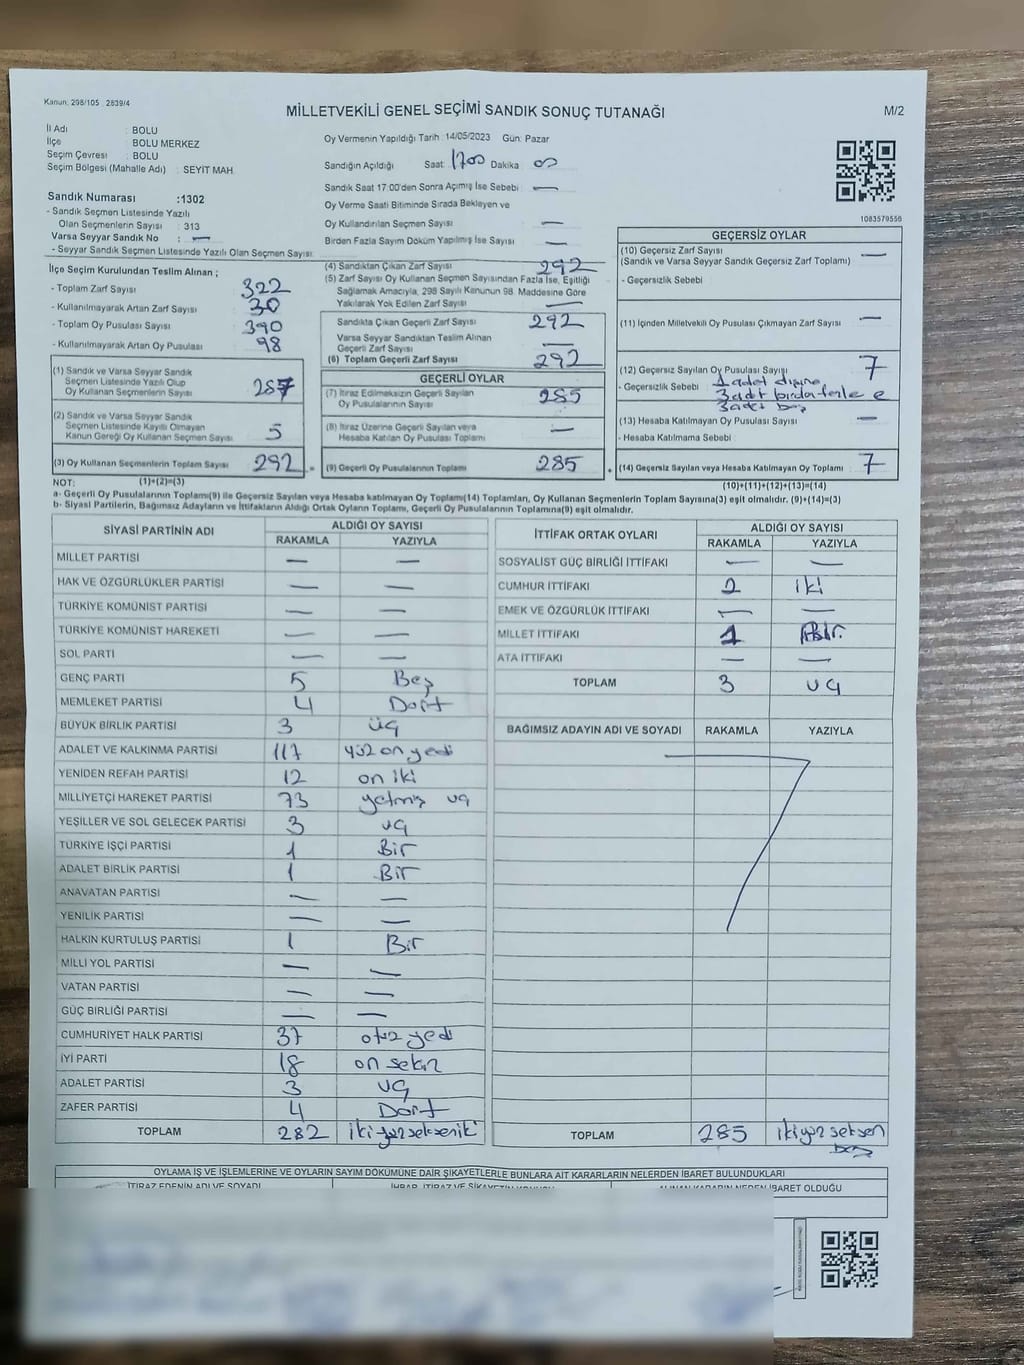 Kanun: 298/105 2839/4
MİLLETVEKİLİ GENEL SEÇİMİ SANDIK SONUÇ TUTANAĞI
M/2
İl Adı : BOLU
İlçe : BOLU MERKEZ
Seçim Çevresi : BOLU
Seçim Bölgesi (Mahalle Adı) : SEYİT MAH.
Sandık Numarası :1302
- Sandık Seçmen Listesinde Yazılı
Olan Seçmenlerin Sayısı : 313
Varsa Seyyar Sandık No : —
- Seyyar Sandık Seçmen Listesinde Yazılı Olan Seçmen Sayısı:
Oy Vermenin Yapıldığı Tarih : 14/05/2023 Gün: Pazar
Sandığın Açıldığı Saat: 17 00 Dakika 00
Sandık Saat 17:00'den Sonra Açılmış İse Sebebi : —
Oy Verme Saati Bitiminde Sırada Bekleyen ve
Oy Kullandırılan Seçmen Sayısı : —
Birden Fazla Sayım Döküm Yapılmış İse Sayısı : —
1083579556
İlçe Seçim Kurulundan Teslim Alınan ;
- Toplam Zarf Sayısı : 322
- Kullanılmayarak Artan Zarf Sayısı : 30
- Toplam Oy Pusulası Sayısı : 390
- Kullanılmayarak Artan Oy Pusulası : 98
(1) Sandık ve Varsa Seyyar Sandık
Seçmen Listesinde Yazılı Olup
Oy Kullanan Seçmenlerin Sayısı 287
(2) Sandık ve Varsa Seyyar Sandık
Seçmen Listesinde Kayıtlı Olmayan
Kanun Gereği Oy Kullanan Seçmen Sayısı 5
(3) Oy Kullanan Seçmenlerin Toplam Sayısı 292
(4) Sandıktan Çıkan Zarf Sayısı 292
(5) Zarf Sayısı Oy Kullanan Seçmen Sayısından Fazla İse, Eşitliği
Sağlamak Amacıyla, 298 Sayılı Kanunun 98. Maddesine Göre
Yakılarak Yok Edilen Zarf Sayısı —
Sandıkta Çıkan Geçerli Zarf Sayısı 292
Varsa Seyyar Sandıktan Teslim Alınan
Geçerli Zarf Sayısı —
(6) Toplam Geçerli Zarf Sayısı 292
GEÇERLİ OYLAR
(7) İtiraz Edilmeksizin Geçerli Sayılan
Oy Pusulalarının Sayısı 285
(8) İtiraz Üzerine Geçerli Sayılan veya
Hesaba Katılan Oy Pusulası Toplamı —
(9) Geçerli Oy Pusulalarının Toplamı 285
GEÇERSİZ OYLAR
(10) Geçersiz Zarf Sayısı
(Sandık ve Varsa Seyyar Sandık Geçersiz Zarf Toplamı) —
- Geçersizlik Sebebi
(11) İçinden Milletvekili Oy Pusulası Çıkmayan Zarf Sayısı —
(12) Geçersiz Sayılan Oy Pusulası Sayısı 7
- Geçersizlik Sebebi 1 adet dışına
3 adet birden fazla e
3 adet boş
(13) Hesaba Katılmayan Oy Pusulası Sayısı —
- Hesaba Katılmama Sebebi
(14) Geçersiz Sayılan veya Hesaba Katılmayan Oy Toplamı 7
NOT: (1)+(2)=(3)
(10)+(11)+(12)+(13)=(14)
a- Geçerli Oy Pusulalarının Toplamı(9) ile Geçersiz Sayılan veya Hesaba katılmayan Oy Toplamı(14) Toplamları, Oy Kullanan Seçmenlerin Toplam Sayısına(3) eşit olmalıdır. (9)+(14)=(3)
b- Siyasi Partilerin, Bağımsız Adayların ve İttifakların Aldığı Ortak Oyların Toplamı, Geçerli Oy Pusulalarının Toplamına(9) eşit olmalıdır.
SİYASİ PARTİNİN ADI ALDIĞI OY SAYISI
RAKAMLA YAZIYLA
MİLLET PARTİSİ — —
HAK VE ÖZGÜRLÜKLER PARTİSİ — —
TÜRKİYE KOMÜNİST PARTİSİ — —
TÜRKİYE KOMÜNİST HAREKETİ — —
SOL PARTİ — —
GENÇ PARTİ 5 Beş
MEMLEKET PARTİSİ 4 Dört
BÜYÜK BİRLİK PARTİSİ 3 üç
ADALET VE KALKINMA PARTİSİ 117 yüz on yedi
YENİDEN REFAH PARTİSİ 12 on iki
MİLLİYETÇİ HAREKET PARTİSİ 73 yetmiş üç
YEŞİLLER VE SOL GELECEK PARTİSİ 3 üç
TÜRKİYE İŞÇİ PARTİSİ 1 Bir
ADALET BİRLİK PARTİSİ 1 Bir
ANAVATAN PARTİSİ — —
YENİLİK PARTİSİ — —
HALKIN KURTULUŞ PARTİSİ 1 Bir
MİLLİ YOL PARTİSİ — —
VATAN PARTİSİ — —
GÜÇ BİRLİĞİ PARTİSİ — —
CUMHURİYET HALK PARTİSİ 37 otuz yedi
İYİ PARTİ 18 on sekiz
ADALET PARTİSİ 3 üç
ZAFER PARTİSİ 4 Dört
TOPLAM 282 iki yüz seksen iki
İTTİFAK ORTAK OYLARI ALDIĞI OY SAYISI
RAKAMLA YAZIYLA
SOSYALİST GÜÇ BİRLİĞİ İTTİFAKI — —
CUMHUR İTTİFAKI 2 iki
EMEK VE ÖZGÜRLÜK İTTİFAKI — —
MİLLET İTTİFAKI 1
ATA İTTİFAKI — —
TOPLAM 3 üç
BAĞIMSIZ ADAYIN ADI VE SOYADI RAKAMLA YAZIYLA
TOPLAM 285 iki yüz seksen
beş
OYLAMA İŞ VE İŞLEMLERİNE VE OYLARIN SAYIM DÖKÜMÜNE DAİR ŞİKAYETLERLE BUNLARA AİT KARARLARIN NELERDEN İBARET BULUNDUKLARI
İTİRAZ EDENİN ADI VE SOYADI İHBAR, İTİRAZ VE ŞİKAYETİN KONUSU ALINAN KARARIN NEDEN İBARET OLDUĞU